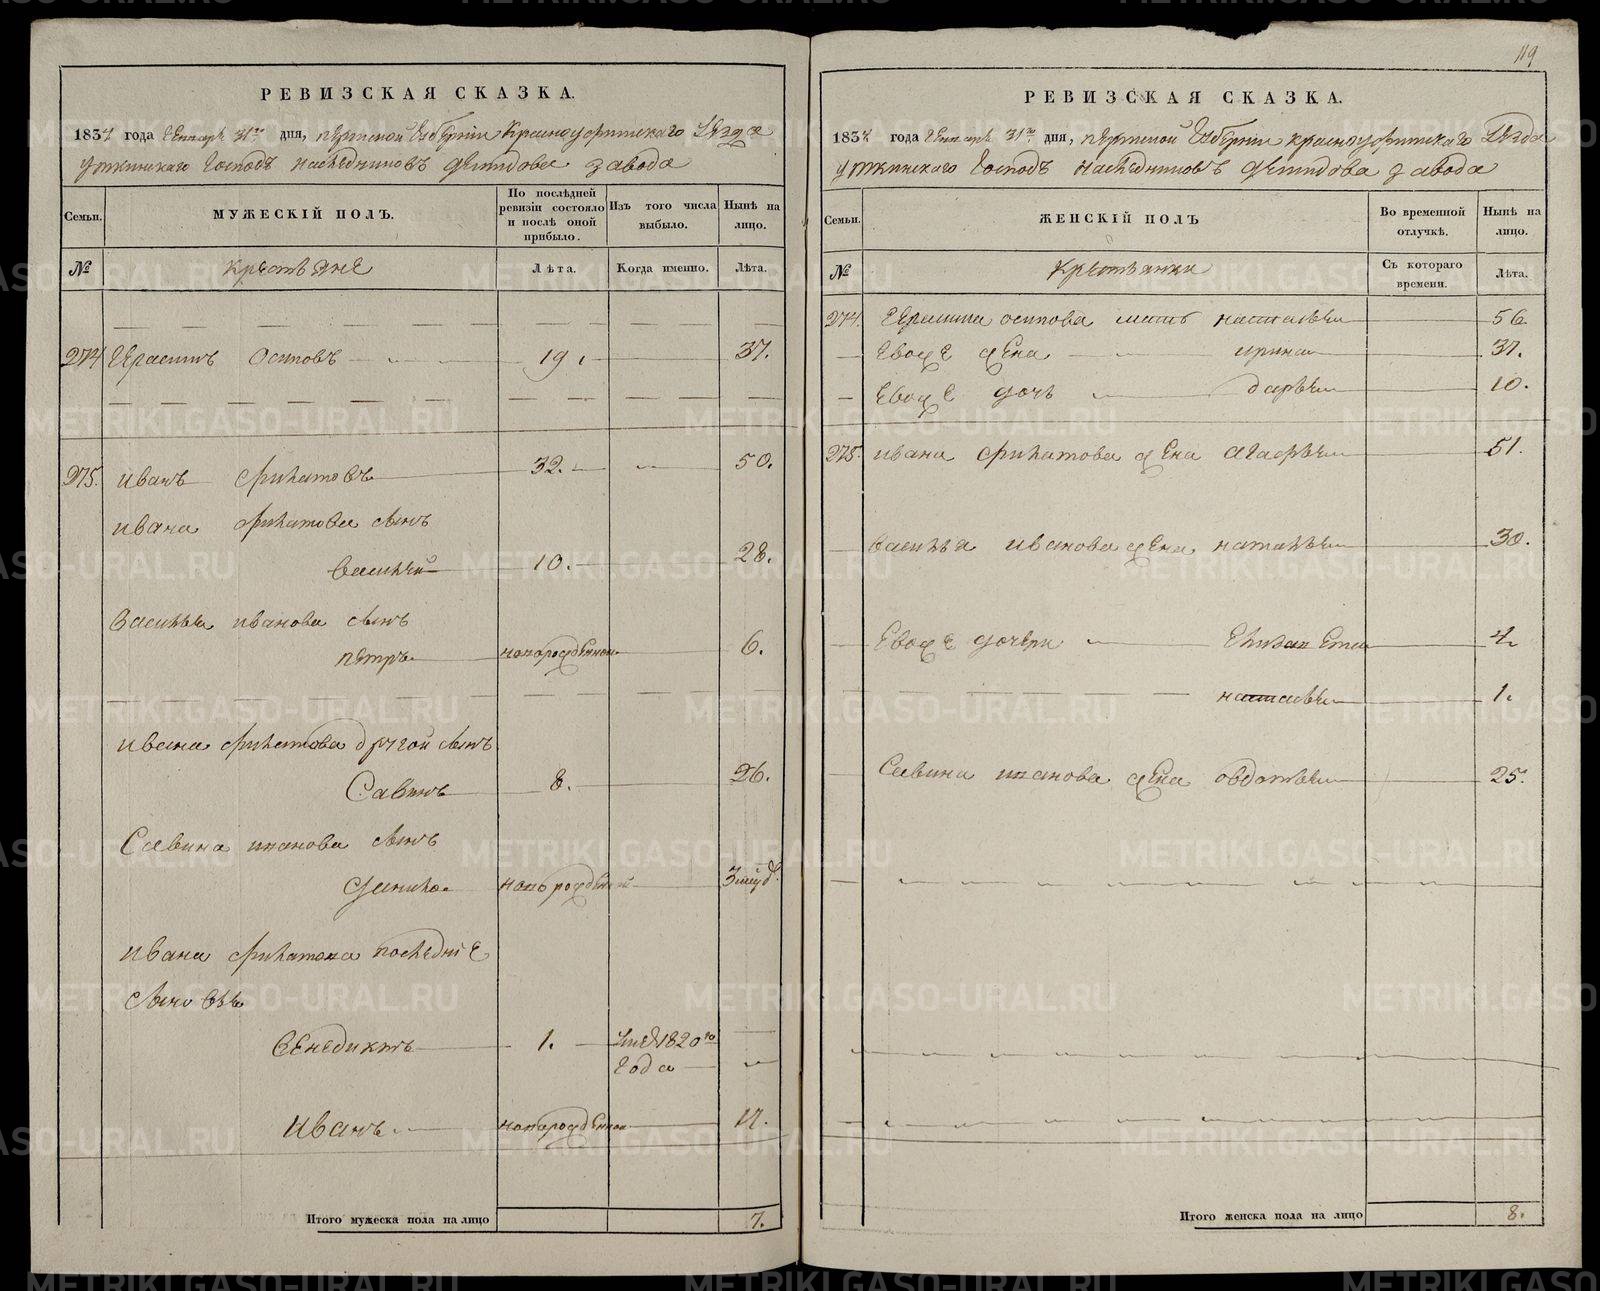 119
РЕВИЗСКАЯ СКАЗКА.
1834 года Генваря 31го дня, Пермской Губернии Красноуфимского Уезда
Уткинскаго Господъ наследниковъ Демидова завода
Семьи.
МУЖЕСКІЙ ПОЛЪ.
По послѣдней ревизіи состояло и послѣ оной прибыло.
Изъ того числа выбыло.
Нынѣ на лицо.
№
Крестьяне
Лѣта.
Когда именно.
Лѣта.
274 Герасимъ Осиповъ 19. 37.
275. Иванъ Филатовъ 32. 50.
Ивана Филатова сынъ
Василей 10. 28.
Василья Иванова сынъ
Петръ новорожденной 6.
Ивана Филатова другой сынъ
Савинъ 8. 26.
Савина Иванова сынъ
Данило новорожденной
Ивана Филатова последніе
сыновья
Венедиктъ 1. 1820го
года
Иванъ новорожденной
Итого мужеска пола на лицо 7.
РЕВИЗСКАЯ СКАЗКА.
1834 года Генваря 31го дня, Пермской Губернии Красноуфимскаго Уезда
Уткинскаго Господъ Наследниковъ Демидова завода
Семьи.
ЖЕНСКІЙ ПОЛЪ
Во временной отлучкѣ.
Нынѣ на лицо.
№
Крестьянки
Съ котораго времени.
Лѣта.
274. Герасима Осипова мать Настасья 56
Евоже жена Ирина 37.
Евоже дочь Дарья 10.
275. Ивана Филатова жена Агафья 51.
Василья Иванова жена Наталья 30.
Евоже дочери Елизавета 4
Настасья 1.
Савина Иванова жена Овдотья 25.
Итого женска пола на лицо 8.
METRIKI.GASO-URAL.RU